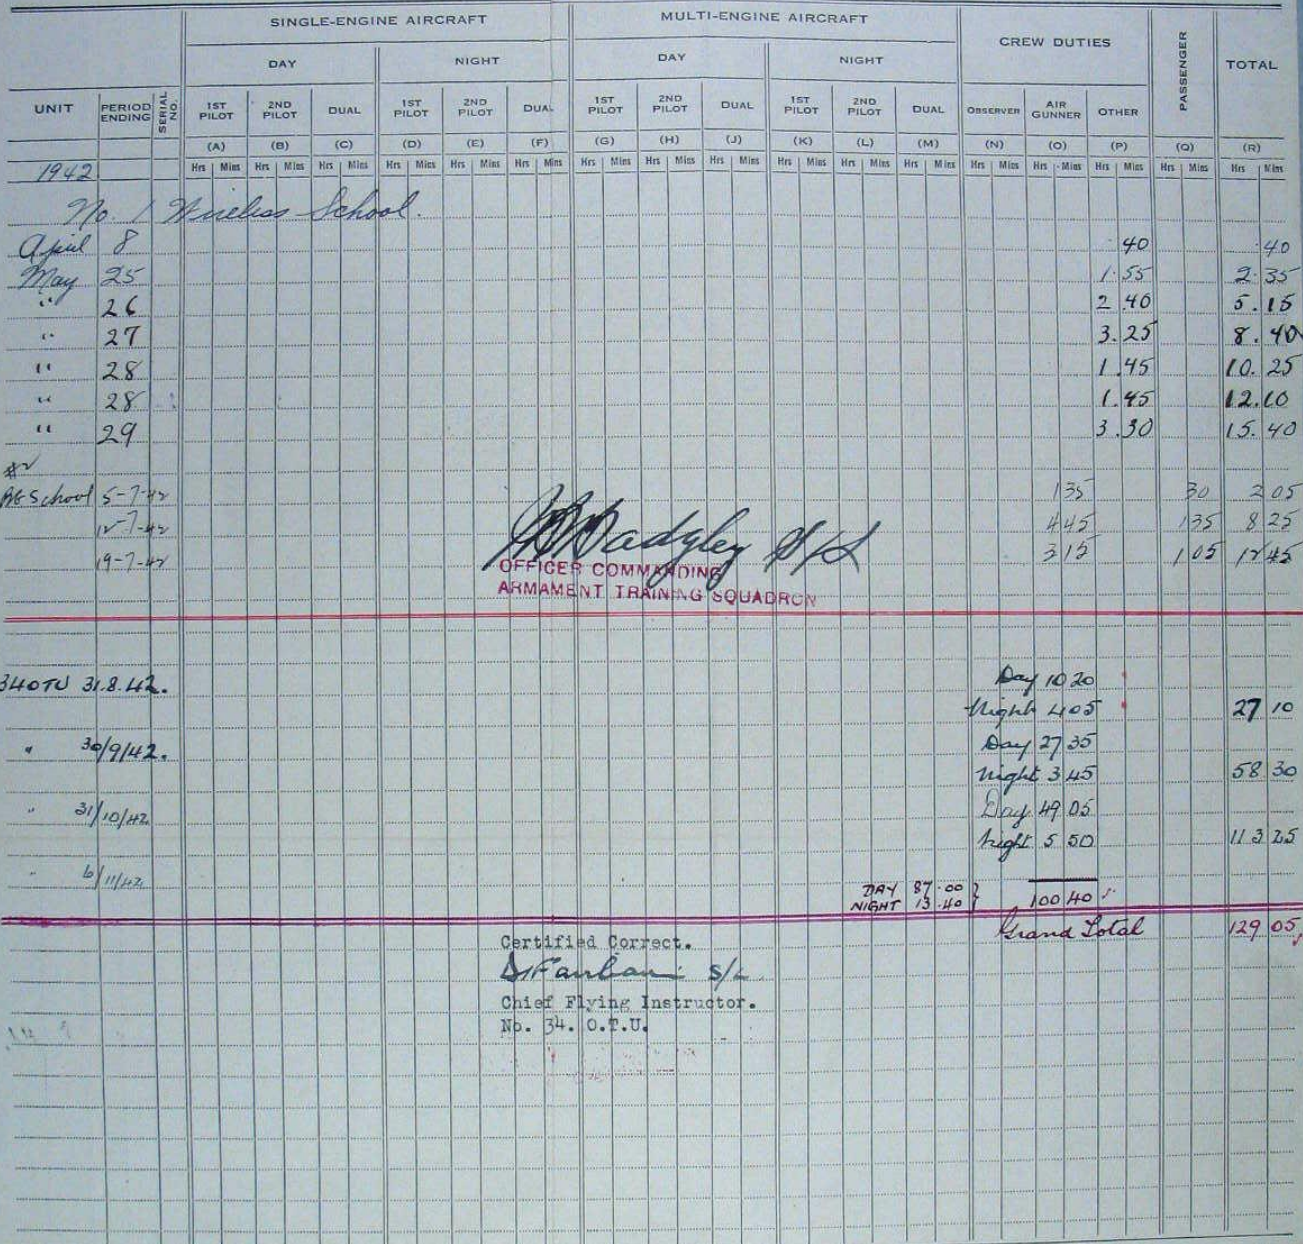 SINGLE-ENGINE AIRCRAFT MULTI-ENGINE AIRCRAFT CREW DUTIES PASSENGER TOTAL
DAY NIGHT DAY NIGHT
UNIT PERIOD ENDING SERIAL NO. 1ST PILOT 2ND PILOT DUAL 1ST PILOT 2ND PILOT DUAL 1ST PILOT 2ND PILOT DUAL 1ST PILOT 2ND PILOT DUAL OBSERVER AIR GUNNER OTHER
(A) (B) (C) (D) (E) (F) (G) (H) (J) (K) (L) (M) (N) (O) (P) (Q) (R)
1942 Hrs Mins Hrs Mins Hrs Mins Hrs Mins Hrs Mins Hrs Mins Hrs Mins Hrs Mins Hrs Mins Hrs Mins Hrs Mins Hrs Mins Hrs Mins Hrs Mins Hrs Mins Hrs Mins Hrs Mins
No. 1 Wireless School.
April 8 40 40
May 25 1.55 2.35
" 26 2.40 5.15
" 27 3.25 8.40
" 28 1.45 10.25
" 28 1.45 12.10
" 29 3.30 15.40
#2
School 5-7-42 1 35 30 2 05
12-7-42 4 45 1 35 8 25
19-7-42 3 15 1 05 12 45
OFFICER COMMANDING
ARMAMENT TRAINING SQUADRON
34OTU 31.8.42. Day 10 20
Night 4 05 27 10
" 30/9/42. Day 27 35
Night 3 45 58 30
" 31/10/42 Day 49 05
Night 5 50 113 25
" 6/11/42
DAY 87.00 } 100 40
NIGHT 13.40
Grand Total 129 05
Certified Correct.
S/L
Chief Flying Instructor.
No. 34. O.T.U.